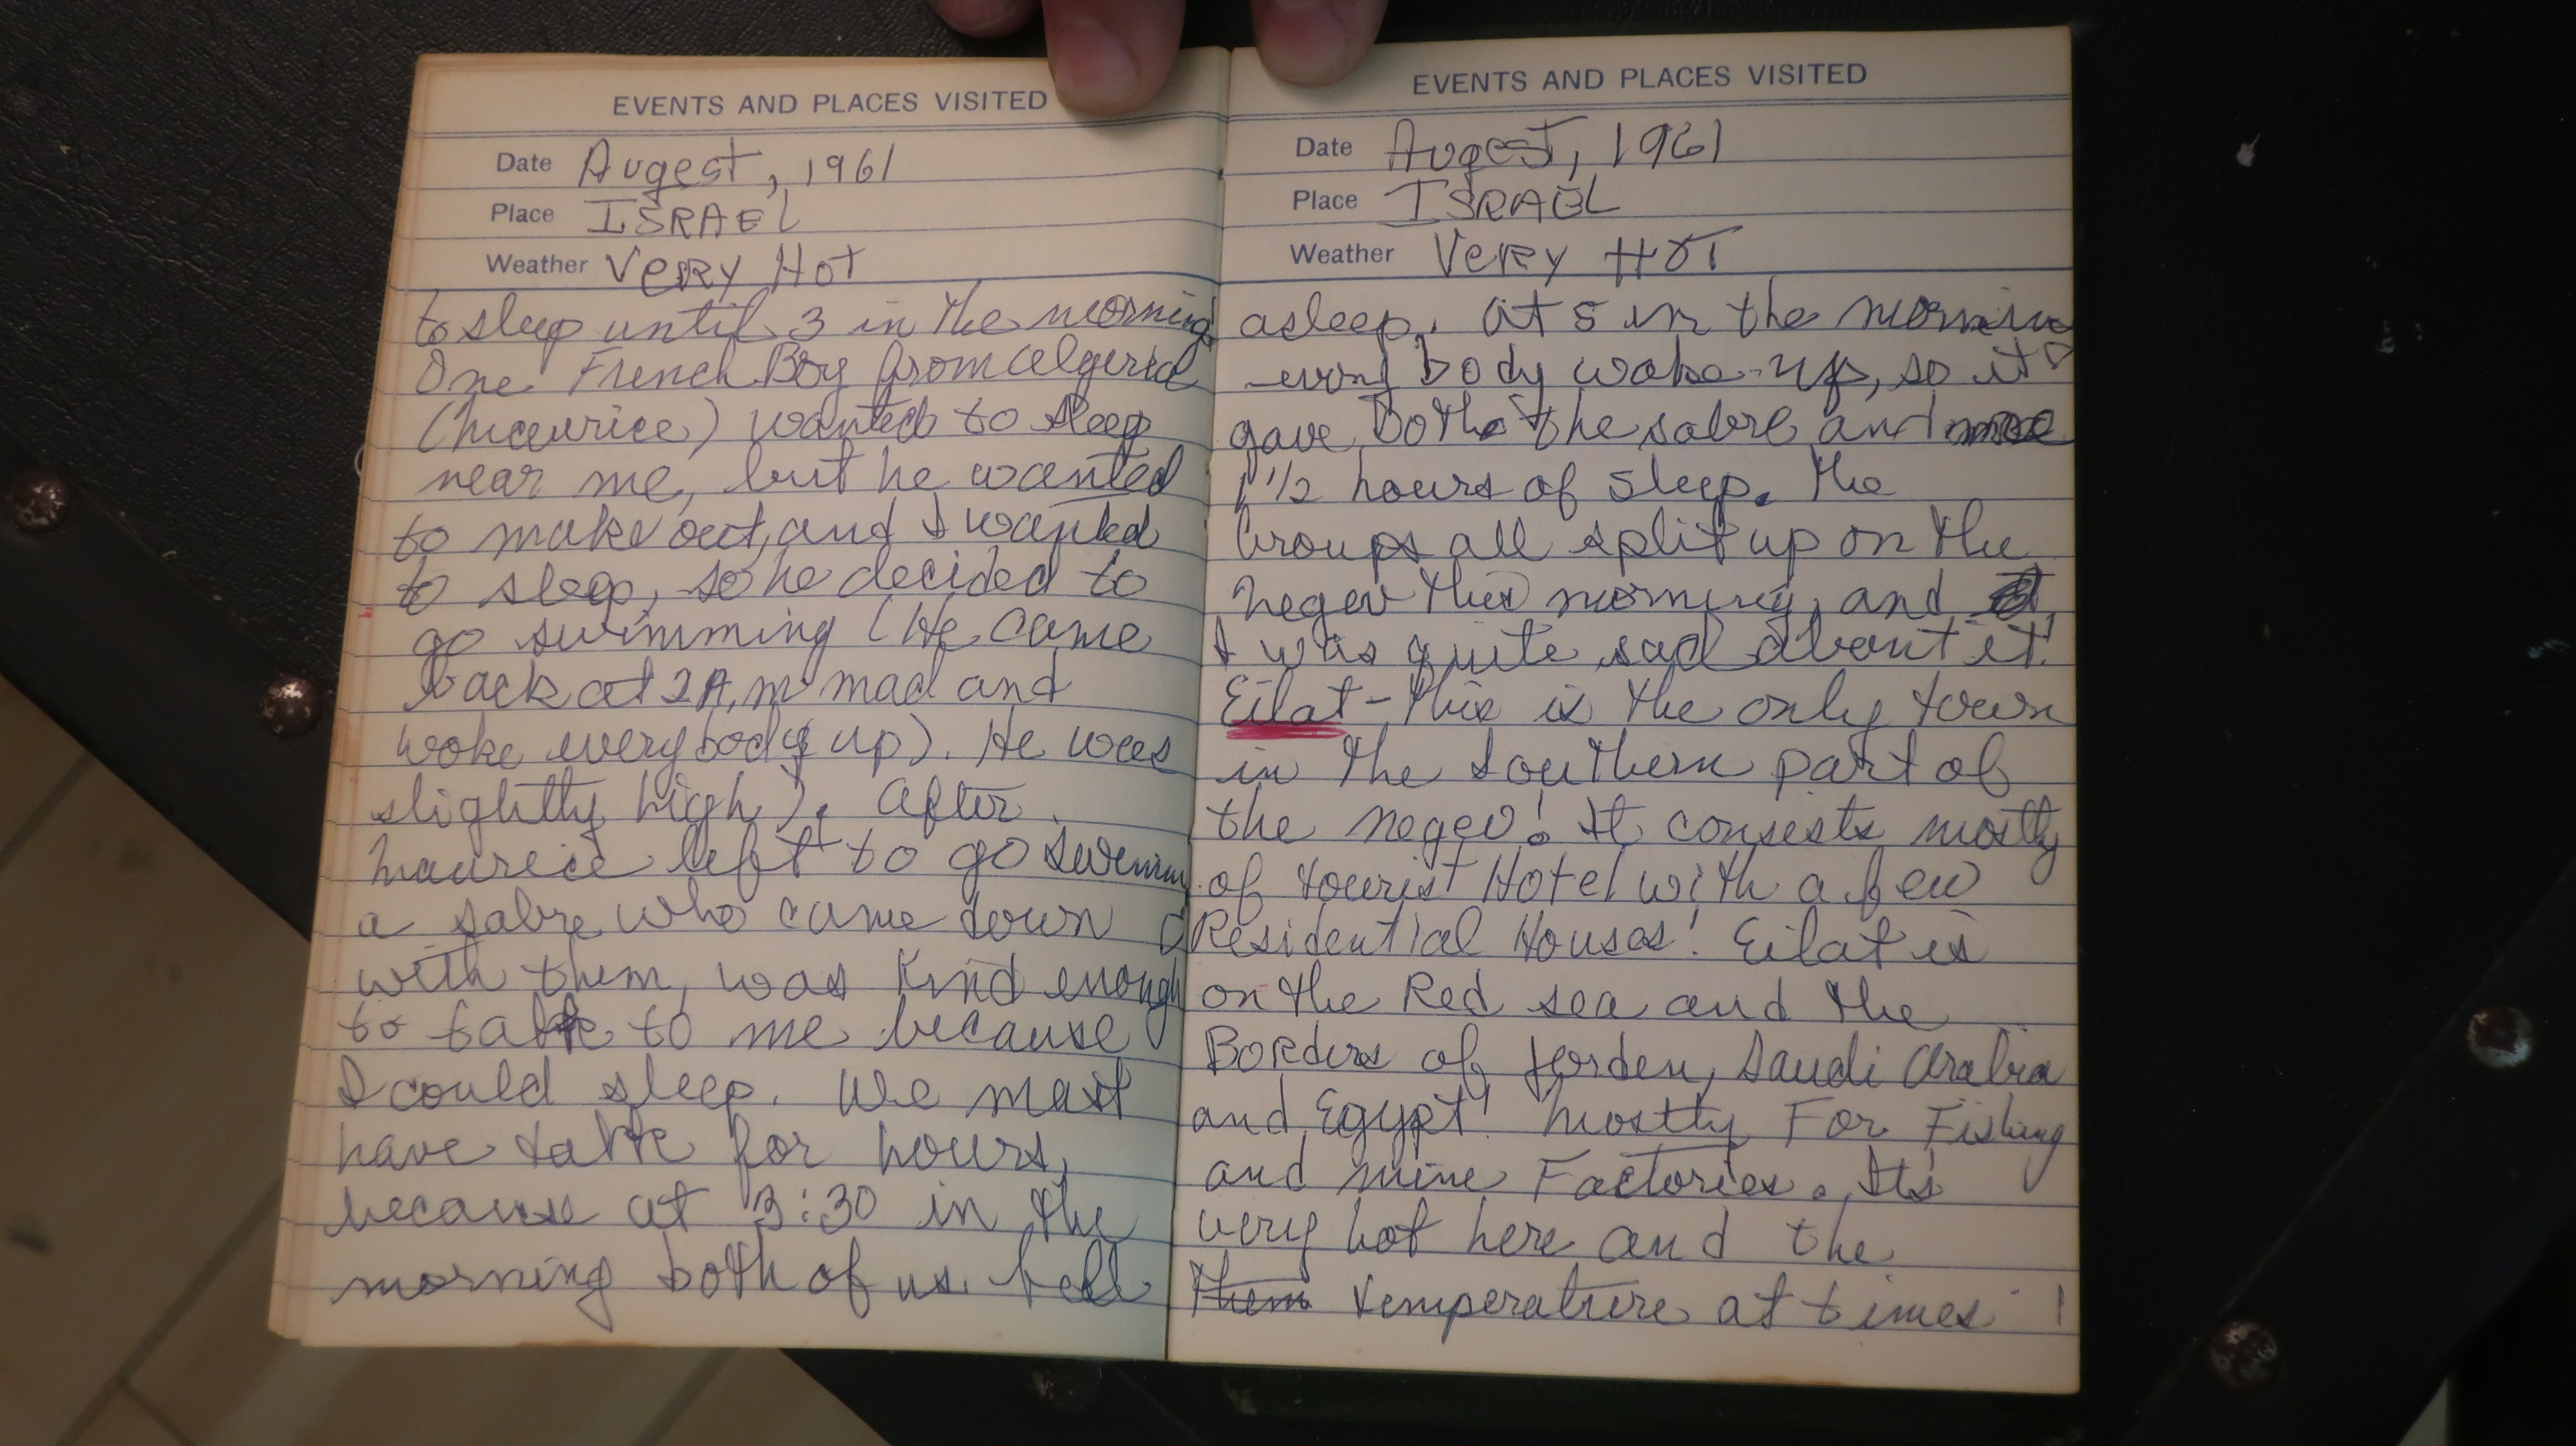 EVENTS AND PLACES VISITED
Date Augest, 1961
Place ISRAEL
Weather VERY HOT
to sleep until 3 in the morning
One French Boy from Algeria
(Maurice) wanted to sleep
near me, but he wanted
to make out, and I wanted
to sleep, so he decided to
go swimming (He came
back at 2 A.m mad and
woke everybody up). He was
slightly high). After
Maurice left to go
a sabre who came down
with them, was kind enough
to talk to me because
I could sleep. We mast
have talk for hours,
because at 3:30 in the
morning both of us fell
EVENTS AND PLACES VISITED
Date Augest, 1961
Place ISRAEL
Weather VERY HOT
asleep. At 5 in the mornin
every body woke up, so it
gave both the sabre and me
1 1/2 hours of sleep. The
Groups all split up on the
Negev this morning, and
I was quite sad about it!
Eilat - This is the only town
in the southern part of
the Negev! It consests mostly
of tourist Hotel with a few
Residential Houses! Eilat is
on the Red sea and the
Borders of Jorden, Saudi Arabia
and Egypt! Mostly For Fishing
and mine Factories. It's
very hot here and the
them temperature at times